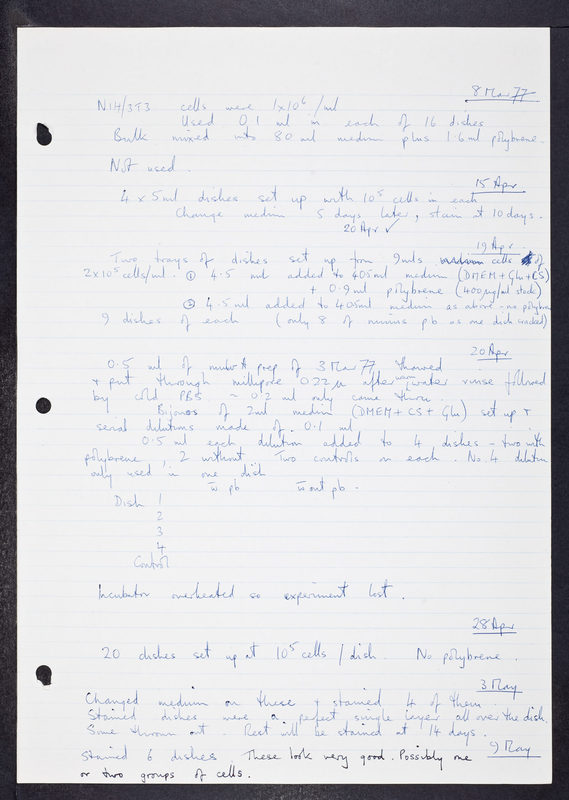 8 Mar 77
NIH/3T3 cells were 1x10⁶/ml
Used 0.1 ml in each of 16 dishes
Bulk mixed into 80 ml medium plus 1.6 ml polybrene.
Not used.
15 Apr
4 x 5ml dishes set up with 10⁵ cells in each
Change medium 5 days later, stain at 10 days.
20 Apr ✓
19 Apr
Two trays of dishes set up from 9mls cells of
2x10⁵ cells/ml. ① 4.5 ml added to 405ml medium (DMEM+Glu+CS)
+ 0.9 ml polybrene (400µg/ml stock)
② 4.5 ml added to 405ml medium as above - no polybrene
9 dishes of each (only 8 of minus pb as one dish cracked)
20 Apr
0.5 ml of prep of 3 Mar 77 thawed
+ put through millipore 0.22 µ after warm water rinse followed
by cold PBS - 0.2 ml only came thru.
Bijous of 2ml medium (DMEM + CS + Glu) set up +
serial dilutions made of 0.1 ml
0.5 ml each dilution added to 4 dishes - two with
polybrene, 2 without. Two controls on each. No. 4 dilution
only used in one dish
w̄ pb w̄out pb.
Dish 1
2
3
4
Control
Incubator overheated so experiment lost.
28 Apr
20 dishes set up at 10⁵ cells / dish. No polybrene.
3 May
Changed medium on these + stained 4 of them.
Stained dishes were a perfect single layer all over the dish.
Some thrown out. Rest will be stained at 14 days.
9 May
Stained 6 dishes These look very good. Possibly one
or two groups of cells.